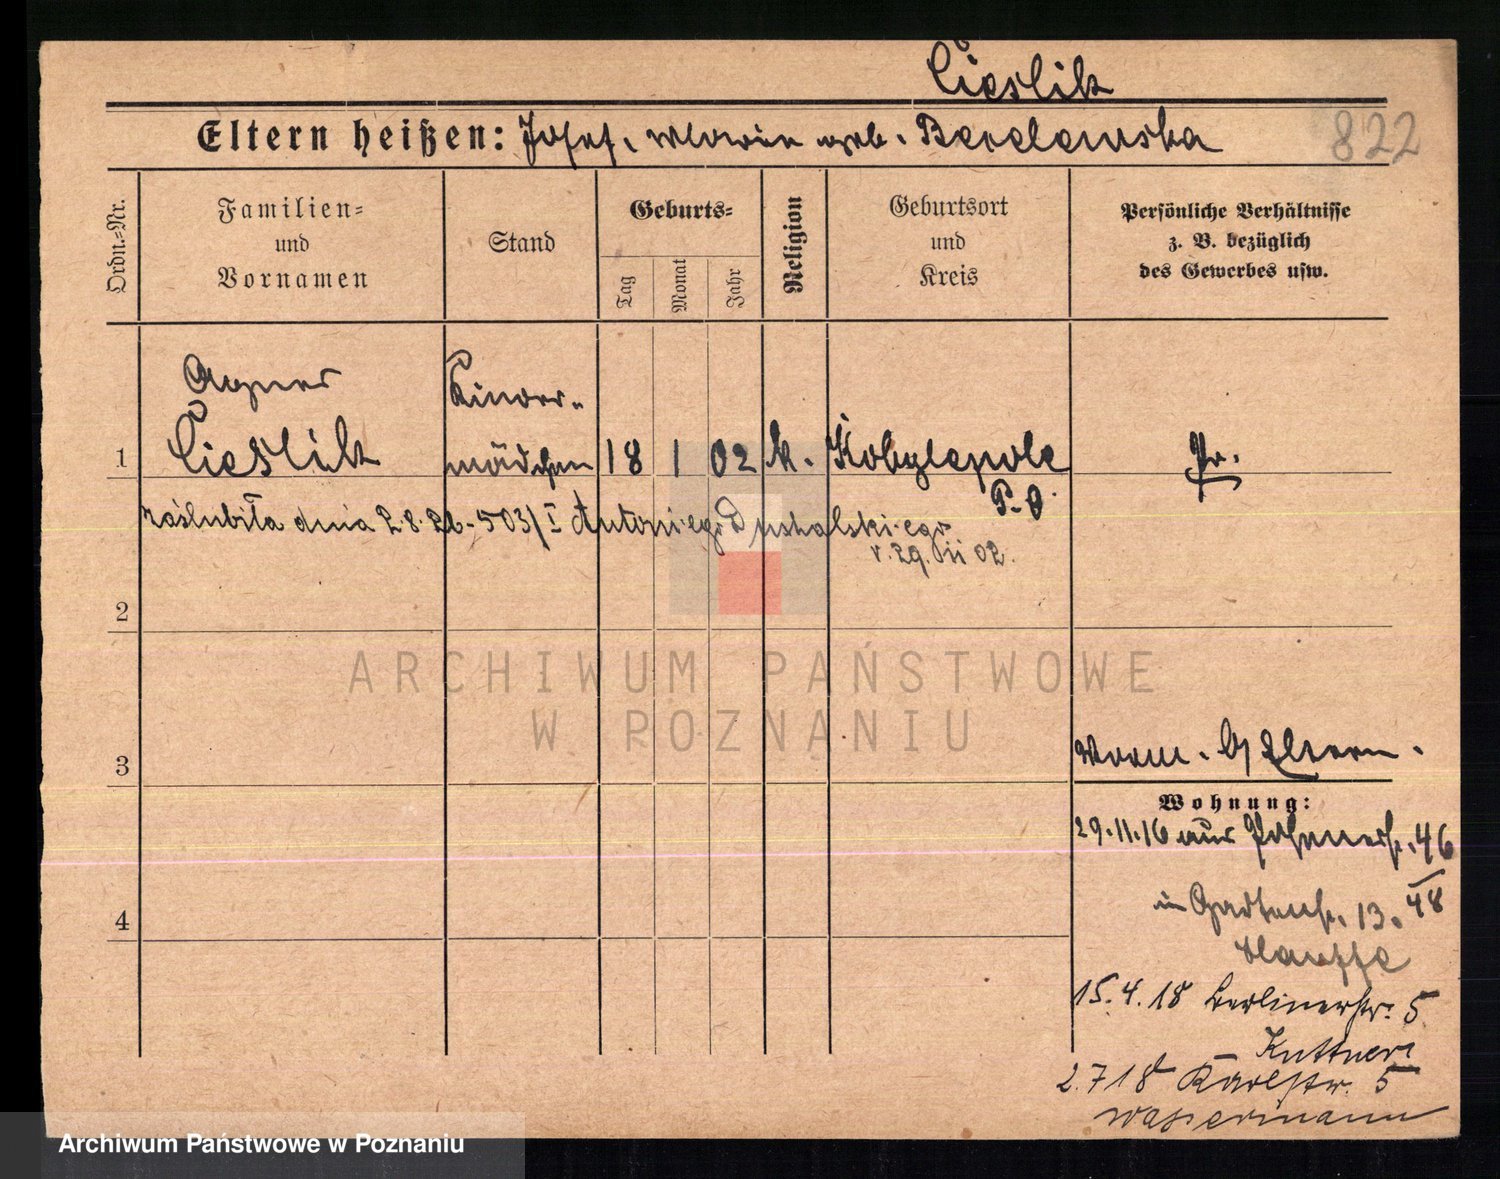 Cieslik
Eltern heißen: Josef, Maria geb. Bardewska
822
Ordn.-Nr.
Familien-
und
Vornamen
Stand
Geburts-
Tag
Monat
Jahr
Religion
Geburtsort
und
Kreis
Persönliche Verhältnisse
z. B. bezüglich
des Gewerbes usw.
Agnes
Kinder-
1 Cieslik mädchen 18 1 02 k. Kobylepole Pr.
P. O.
zaślubiła dnia 2.8.26 - 503/I Antoniego
r. 29. II 02.
2
ARCHIWUM PAŃSTWOWE
W POZNANIU
3
Vorm. b/ Eltern.
Wohnung:
29.11.16 aus 46
/48
4
in Gartenstr. 13.
15.4.18 Berlinerstr. 5
Kuttner
2.7 18 Karlstr. 5
Wassermann
Archiwum Państwowe w Poznaniu